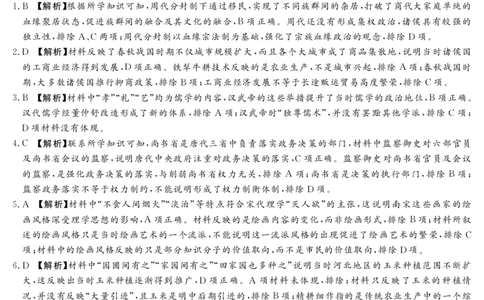 1. B 【解析】根据所学知识可知,周代分封制下通过移民,实现了不同族群间的杂居,打破了商代大家庭单纯的
血缘聚居状态,促进族群间的融合及其文化的融合,B项正确。周代还没有形成集权政治,诸侯具有较强的
独立性,排除A、C两项;周代分封制以血缘宗法制为基础,强化了宗族血缘政治的观念,排除D项。
2. D 【解析】材料反映了春秋战国时期不仅城市规模扩大,而且各个大城市成了商品集散地,说明当时诸侯国
的工商业经济得到发展,D项正确。铁犁牛耕技术反映的是农业生产,不是城市兴起,排除A项;春秋战国时
期,大多数诸侯国推行抑商政策,排除B项;工商业经济发展不等于长途贩运贸易高度繁荣,排除C项。
3. B 【解析】材料中“孝”“礼”“艺”均为儒学的内容,汉武帝的这些举措提升了当时儒学的政治地位,B项正确。
汉代儒学经董仲舒改造形成了新的体系,排除A项;汉武帝时“独尊儒术”,并没有罢黜其他学派,排除C项;
D项材料没有体现。
4. C 【解析】联系所学知识可知,尚书省是唐代三省中负责落实政务决策的部门,材料中监察御史对六部官员
及尚书省会议的监察,说明唐代中央政府注重对政务决策的落实,C项正确。监察御史对尚书省官员及会议
的监察,是强化政务决策的落实,与削弱尚书省权力无关,排除A项;尚书省是决策的执行部门,排除B项;
监察政务落实不等于权力制约,不能说明形成了权力制衡体制,排除D项。
5. A 【解析】材料中“不食人间烟火”“淡泊”等特点符合宋代理学“灭人欲”的主张,这说明南宋这些画家的绘
画风格深受理学思想的影响,A项正确。材料反映的是绘画内容的变化,而非绘画形式,排除B项;材料所叙
述的绘画风格只是当时绘画艺术的一个流派,不能说明这一流派风格的出现促进了绘画艺术的繁荣,排除C
项;材料中的绘画风格反映的只是部分知识分子的价值取向,而不是市民的价值取向,排除D项。
6. D 【解析】材料中“园圃间有之”“家园间有之”“田家园也多种之”说明当时河北地区的玉米种植范围不断扩
大,这反映出当时玉米种植逐渐得到推广,D项正确。A项材料未体现,排除;材料只反映了玉米的种植情
况,并没有反映“大量引进”,且玉米是明中后期引进的,排除B项;精耕细作指的是传统农业生产中的一个综